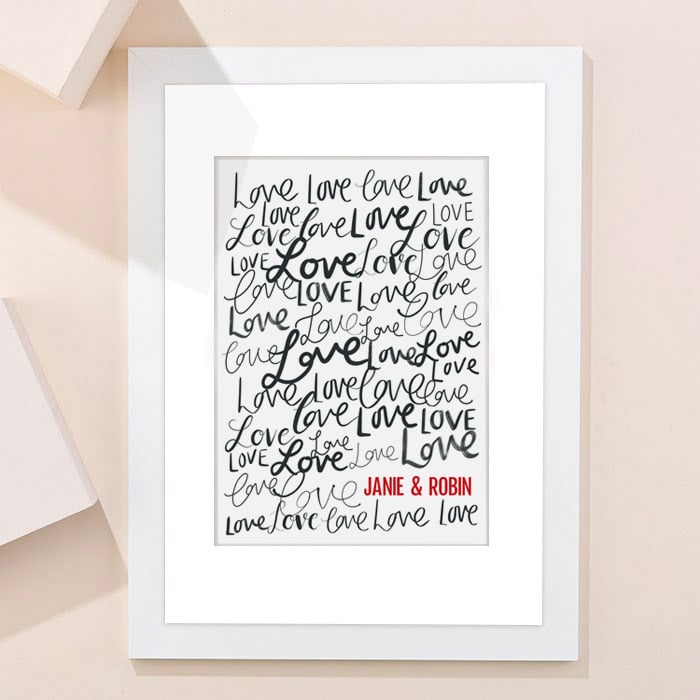 Love Love Love Love
Love LOVE
Love Love Love Love
LOVE Love Love Love
Love LOVE Love Love
Love Love Love Love
Love Love Love Love
Love
Love Love Love Love
Love Love LOVE
Love Love Love
LOVE Love Love Love
Love Love JANIE & ROBIN
Love Love Love Love Love